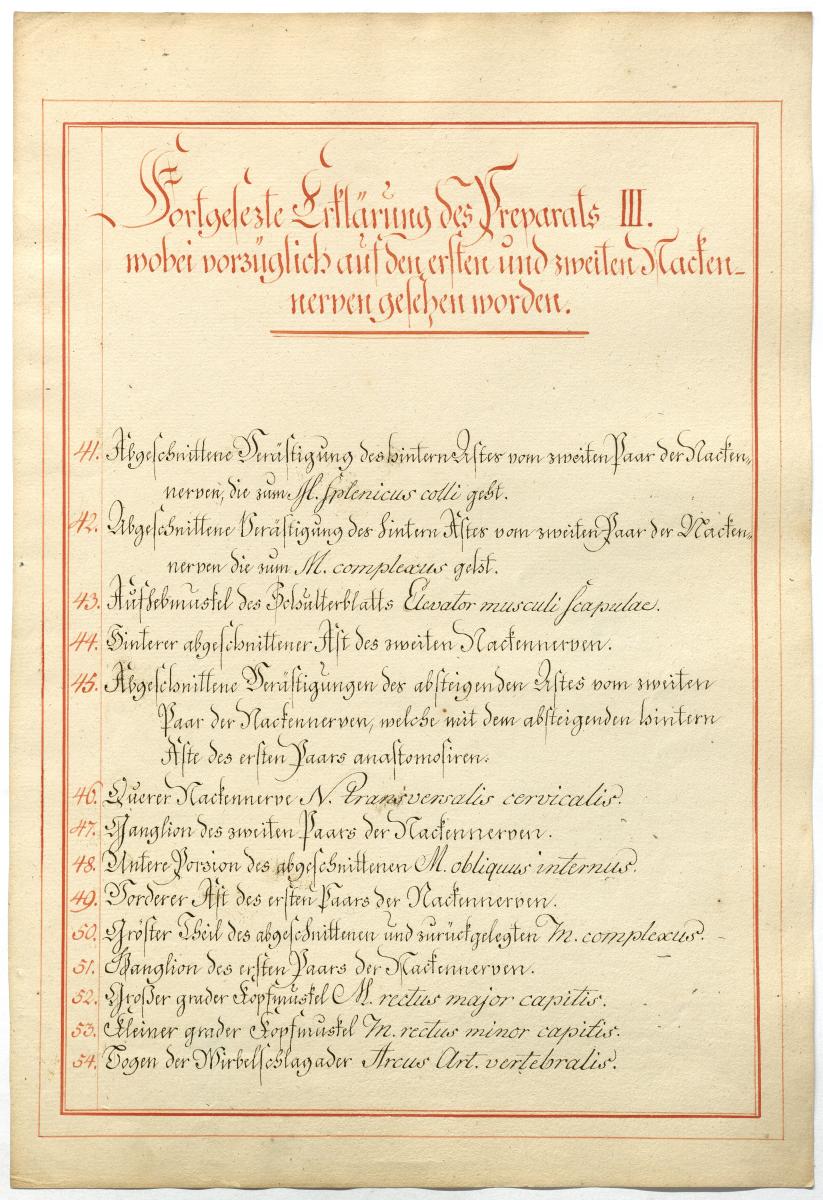 Fortgesezte Erklärung des Preparats III.
wobei vorzüglich auf den ersten und zweiten Nacken-
nerven gesehen worden.
41. Abgeschnittene Verästigung des hintern Astes vom zweiten Paar der Nacken-
nerven, die zum M. Splenicus colli geht.
42. Abgeschnittene Verästigung des hintern Astes vom zweiten Paar der Nacken-
nerven die zum M. complexus geht.
43. Aufhebmuskel des Schulterblatts Elevator musculi scapulae.
44. Hinterer abgeschnittener Ast des zweiten Nackennerven.
45. Abgeschnittene Verästigungen des absteigenden Astes vom zweiten
Paar der Nackennerven, welche mit dem absteigenden hintern
Äste des ersten Paars anastomosiren.
46. Querer Nackennerve N. transversalis cervicalis.
47. Ganglion des zweiten Paars der Nackennerven.
48. Untere Porsion des abgeschnittenen M. obliquus internus.
49. Vorderer Ast des ersten Paars der Nackennerven.
50. Gröster Theil des abgeschnittenen und zurückgelegten M. complexus.
51. Ganglion des ersten Paars der Nackennerven.
52. Großer grader Kopfmuskel M. rectus major capitis.
53. Kleiner grader Kopfmuskel M. rectus minor capitis.
54. Bogen der Wirbelschlagader Arcus Art. vertebralis.